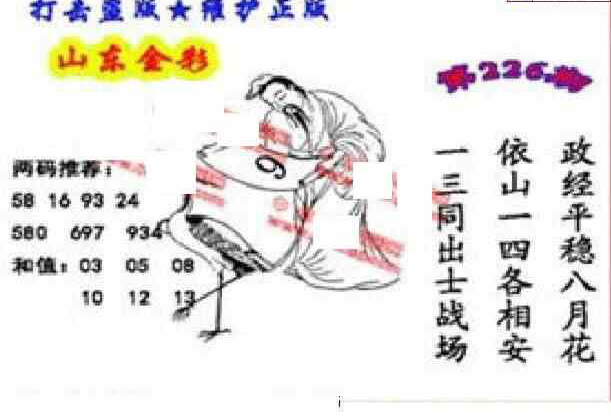 打击盗版★维护正版
山东金彩
第226期
两码推荐：
58 16 93 24
580 697 934
和值：03 05 08
10 12 13
9
政经平稳八月花
依山一四各相安
一三同出士战场